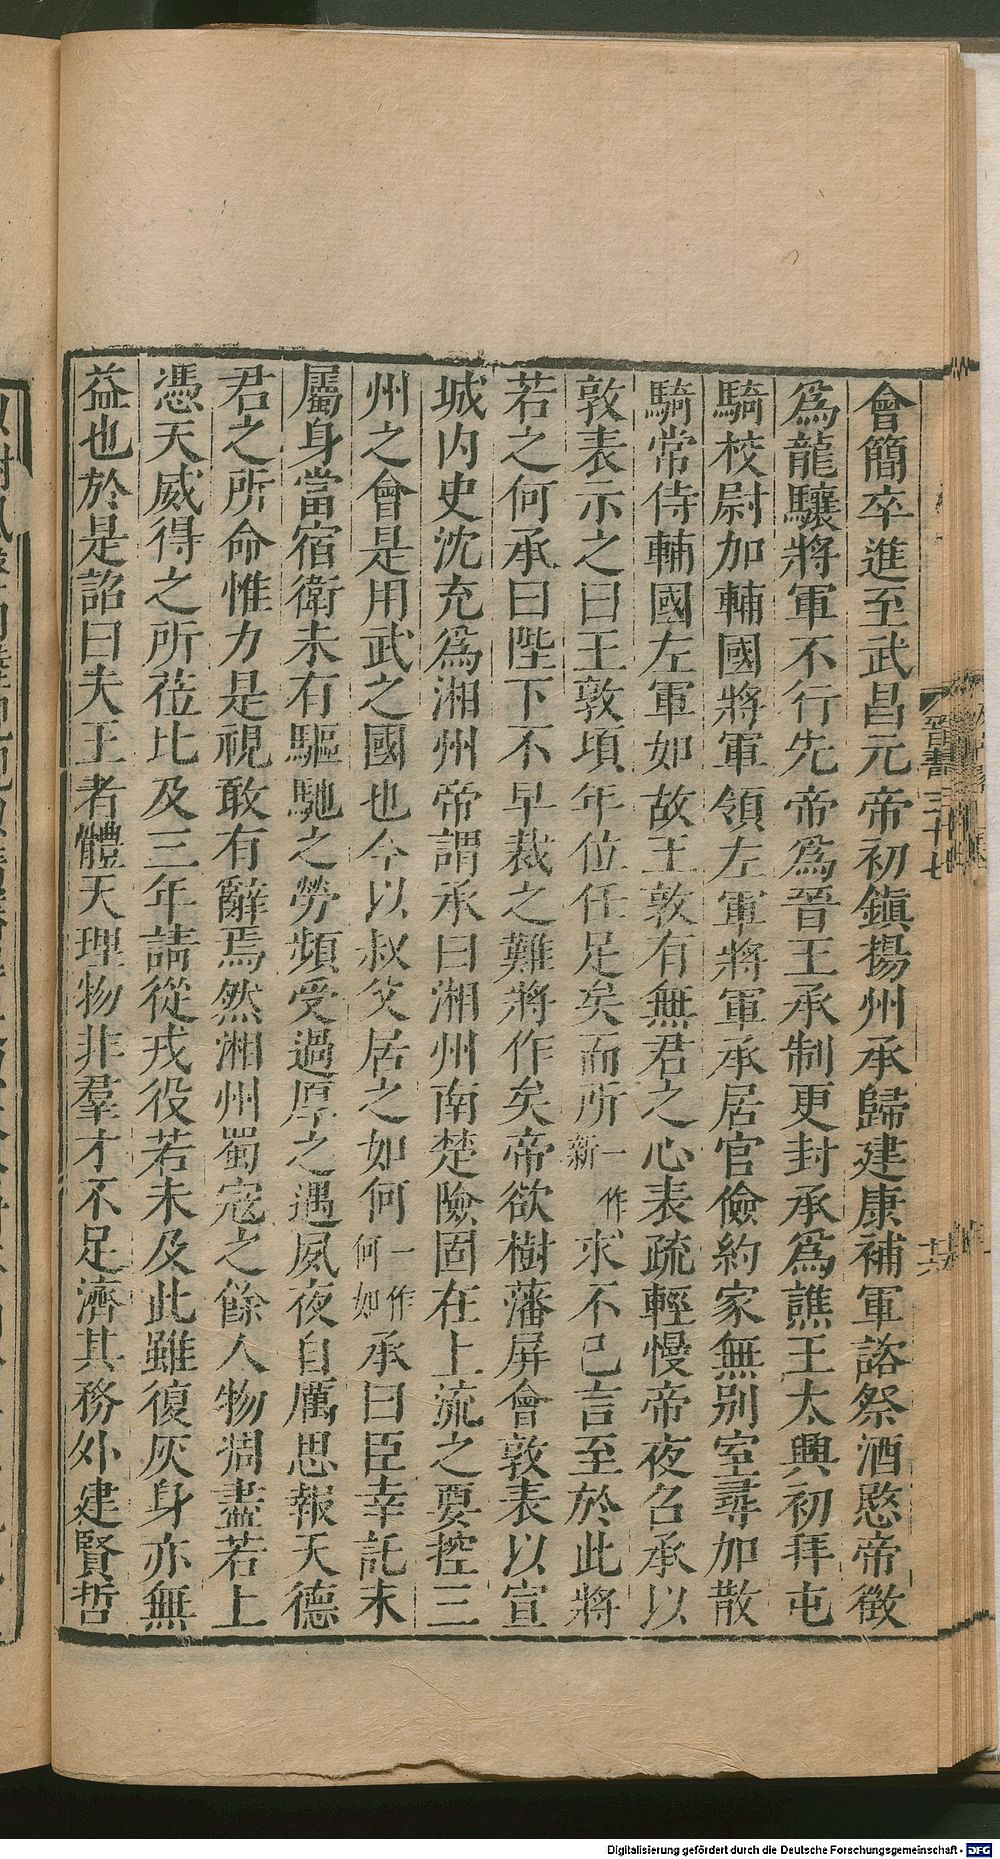 會簡卒進至武昌元帝初鎮揚州承歸建康補軍諮祭酒愍帝徵
爲龍驤將軍不行先帝爲晉王承制更封承爲譙王太興初拜屯
騎校尉加輔國將軍領左軍將軍承居官儉約家無別室尋加散
騎常侍輔國左軍如故王敦有無君之心表疏輕慢帝夜召承以
敦表示之曰王敦頃年位任足矣而所一作新求不已言至於此將
若之何承曰陛下不早裁之難將作矣帝欲樹藩屏會敦表以宣
城內史沈充爲湘州帝謂承曰湘州南楚險固在上流之要控三
州之會是用武之國也今以叔父居之如何一作何如承曰臣幸託末
屬身當宿衛未有驅馳之勞頻受過厚之遇夙夜自厲思報天德
君之所命惟力是視敢有辭焉然湘州蜀寇之餘人物凋盡若上
憑天威得之所莅比及三年請從戎役若未及此雖復灰身亦無
益也於是詔曰夫王者體天理物非羣才不足濟其務外建賢哲
晉書三十七
Digitalisierung gefördert durch die Deutsche Forschungsgemeinschaft - DFG